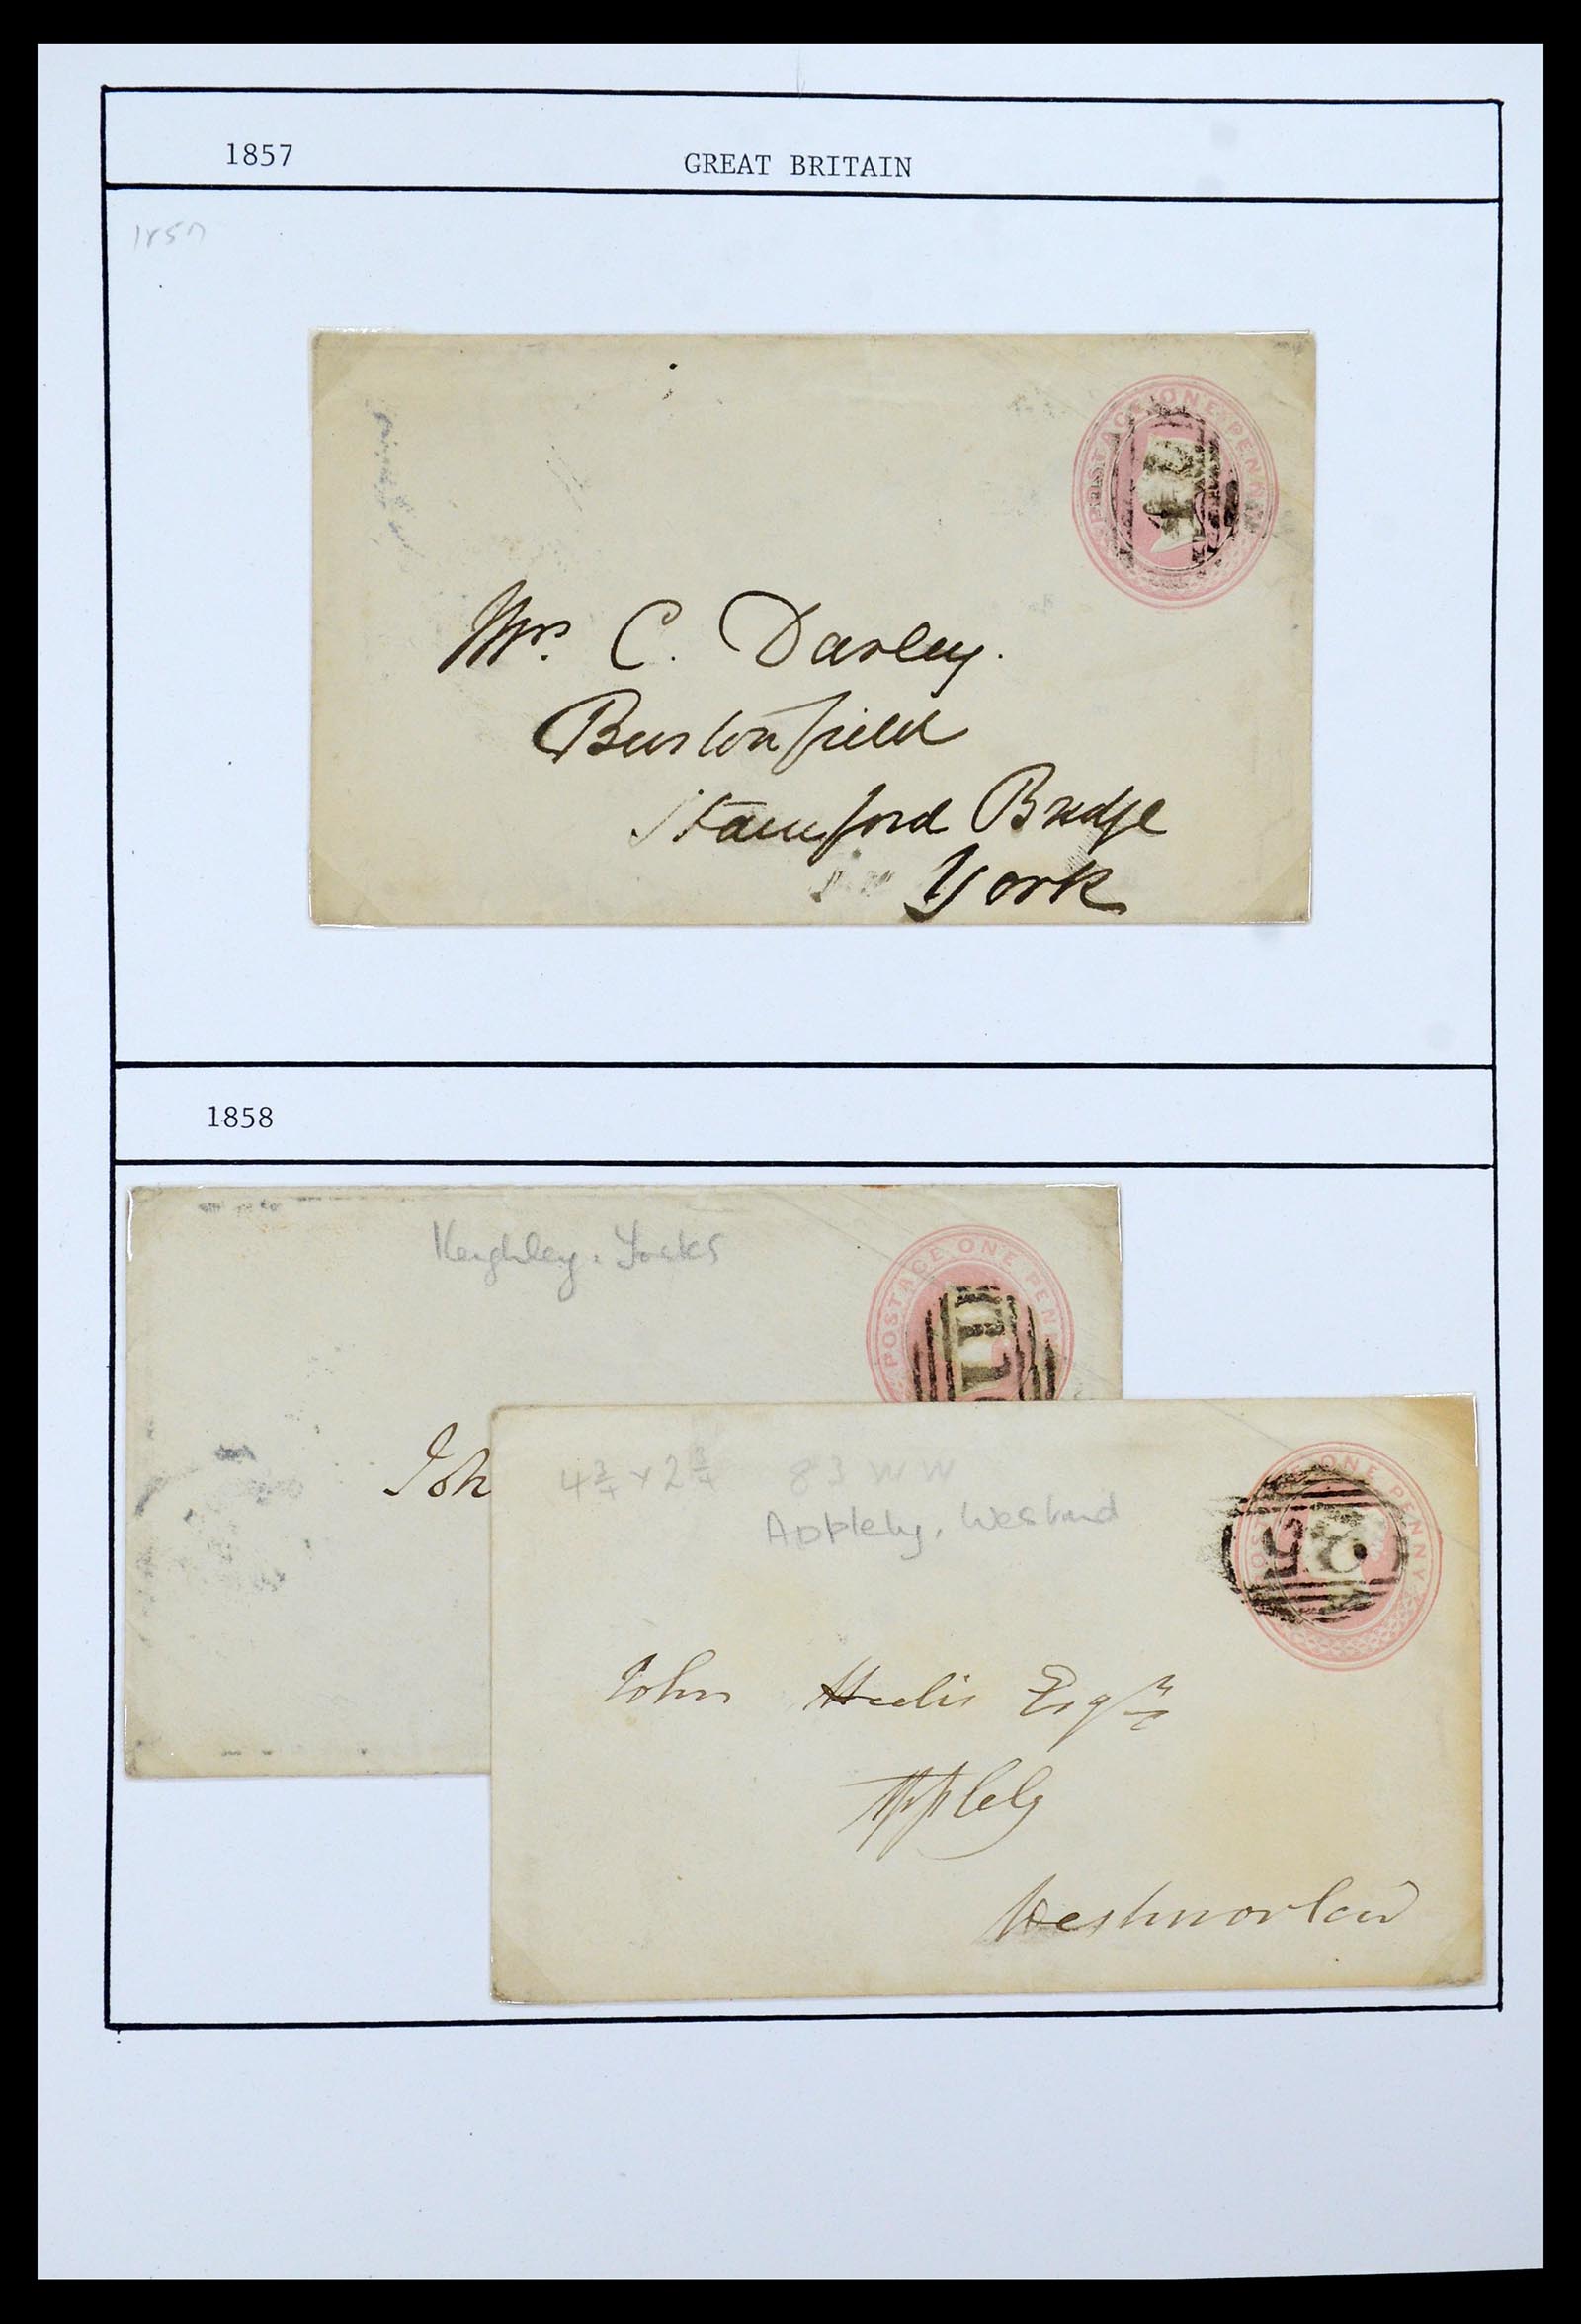 1857
GREAT BRITAIN
1857
POSTAGE ONE PENNY
Mrs. C. Darley.
Burtonfield
Stamford Bridge
York
1858
Keighley. Yorks
POSTAGE ONE PENN
Joh
4 3/4 x 2 3/4 83 WW
Appleby, Westmd
POSTAGE ONE PENNY
John Heelis Esqre
Appleby
Westmorland